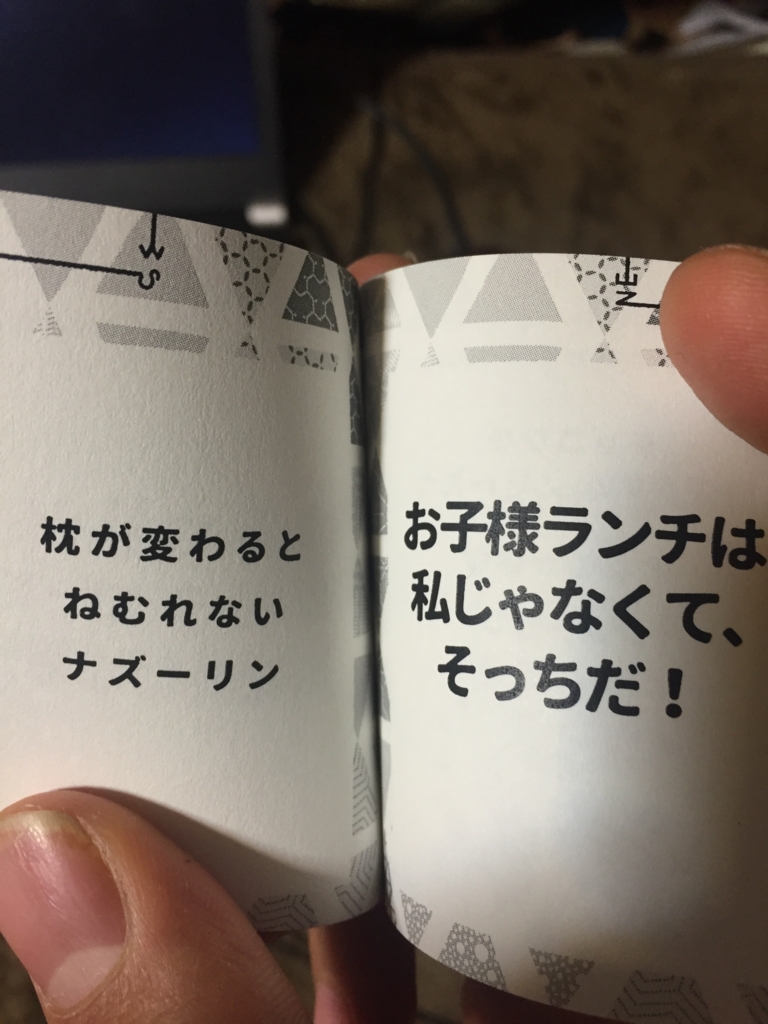 W
S
枕が変わると
ねむれない
ナズーリン
NE
お子様ランチは
私じゃなくて、
そっちだ！